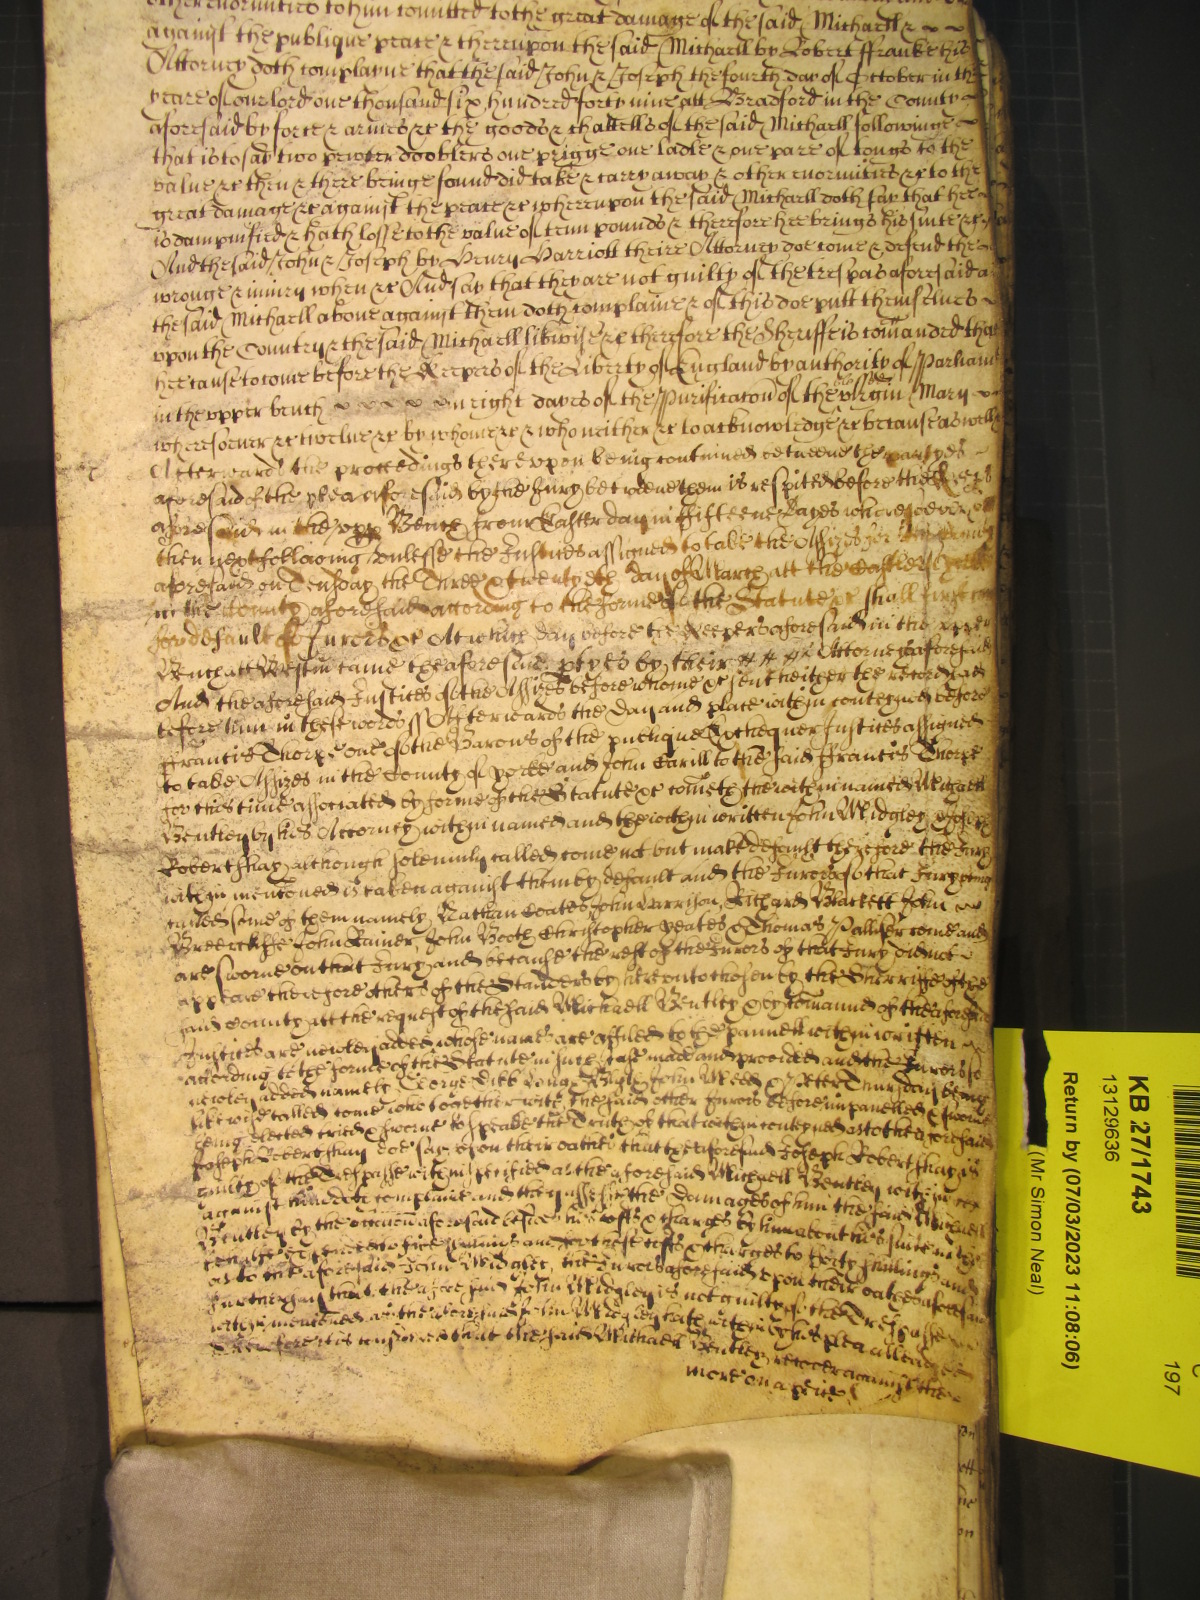 other enormities to him comitted to the great damage of the said Michaell &
against the publique peace & thereupon the said Michaell by Robert ffranke his
Attorney doth complayne that the said John & Joseph the fourth day of October in the
yeare of our lord one thousand six hundred forty nine att Bradford in the County
aforesaid by force & armes &c the goods & chattells of the said Michaell followinge
that is to say two pewter dooblers one prigge one ladle & one pare of tongs to the
value &c then & there beinge found did take & carry away & other enormities &c to the
great damage &c against the peace &c whereupon the said Michaell doth say that hee
is dampnified & hath losse to the value of tenn pounds & therefore hee brings his suite &c
And the said John & Joseph by Henry Harriott theire Attorney doe come & defend the
wronge & iniury when &c And say that they are not guilty of the trespas aforesaid as
the said Michaell aboue against them doth complaine & of this doe putt themselues
vpon the Country & the said Michaell likwise &c therefore the Sheriffe is comanded that
hee cause to come before the Keepers of the Liberty of England by authority of Parliamt
in the vpper bench in eight dayes of the Purificaton of the virgin Mary
wheresoeuer &c twelue &c by whome &c & who neither &c to acknowledge &c because as well
Afterwards the proceedings therevpon being contineued betweene the partyes
aforesaid of the plea aforesaid by the Jury betweene them is respited before the Keepers
aforesaid in the vpp Bench from Easter day in fifteene dayes wheresoever
then next following vnlesse the Justices assigned to take the Assizes
aforesaid on Tuesday the Three & twentyeth day of March att the Castle of Yorke
in the County aforesaid according to the forme of the Statute &c shall first come
for default of Jurors &c At which day before the Keepers aforesaid in the vpper
Bench att Westm came the aforesaid ptyes by their Attorneys aforesaid
And the aforesaid Justices of the Assizes before whome &c sent heither the record had
before him in these words ss Afterwards the day and place within conteyned before
ffrancis Thorpe one of the Barons of the publique Exchequer Justices assigned
to take Assizes in the County of yorke and John Carill to the said ffrancis Thorpe
for this time associated by forme of the Statute &c cometh the within named Michaell
Bentley by his Attorney within named and the within written John Midgley & Joseph
Robertshay although solemnly called come not but make default therefore the Jury
within mentioned is taken against them by default and the Jurors of that Jury being
called some of them namely Nathan Coates John Harrison, Richard Blackett John
Brearcliffe John Rainer, John Booth Christopher yeates & Thomas Palliser come and
are sworne on that Jury and because the rest of the Jurors of that Jury did not
appeare therefore others of the Standers by herevnto chosen by the Sherriffe of the
said County att the request of the said Michaell Bentley & by comannd of the aforesaid
Justices are newley added whose names are affiled to the pannell within written
according to the forme of the Statute in such case made and provided and the Jurors so
newley added namely George Dibb John Webb & Peter Thursday being
likewise called come who together with the said other Jurors before impanelled & sworne
being elected tried & sworne to speake the Truth of that within conteyned as to the aforesaid
Joseph Robertshay doe say vpon their oathes that the aforesaid Joseph Robertshay is
guilty of the Trespasse within specified as the aforesaid Michaell Bentley within
against him doth complaine and they assesse the damages of him the said Michaell
Bentley by the occasion aforesaid besides his costs & charges by him about his suite in this
behalfe and for those costs & charges to forty shillings and
as to the aforesaid John Midgley the Jurors aforesaid vpon their oathes aforesaid
further say that the aforesaid John Midgley is not guilty of the Trespasse
within mentioned as the aforesaid John Midgley hath within by his plea alleadged
Therefore it is considered that the said Michaell Bentley recover against the
more on a peice
KB 27/1743
13129636
Return by (07/03/2023 11:08:06)
(Mr Simon Neal)
197